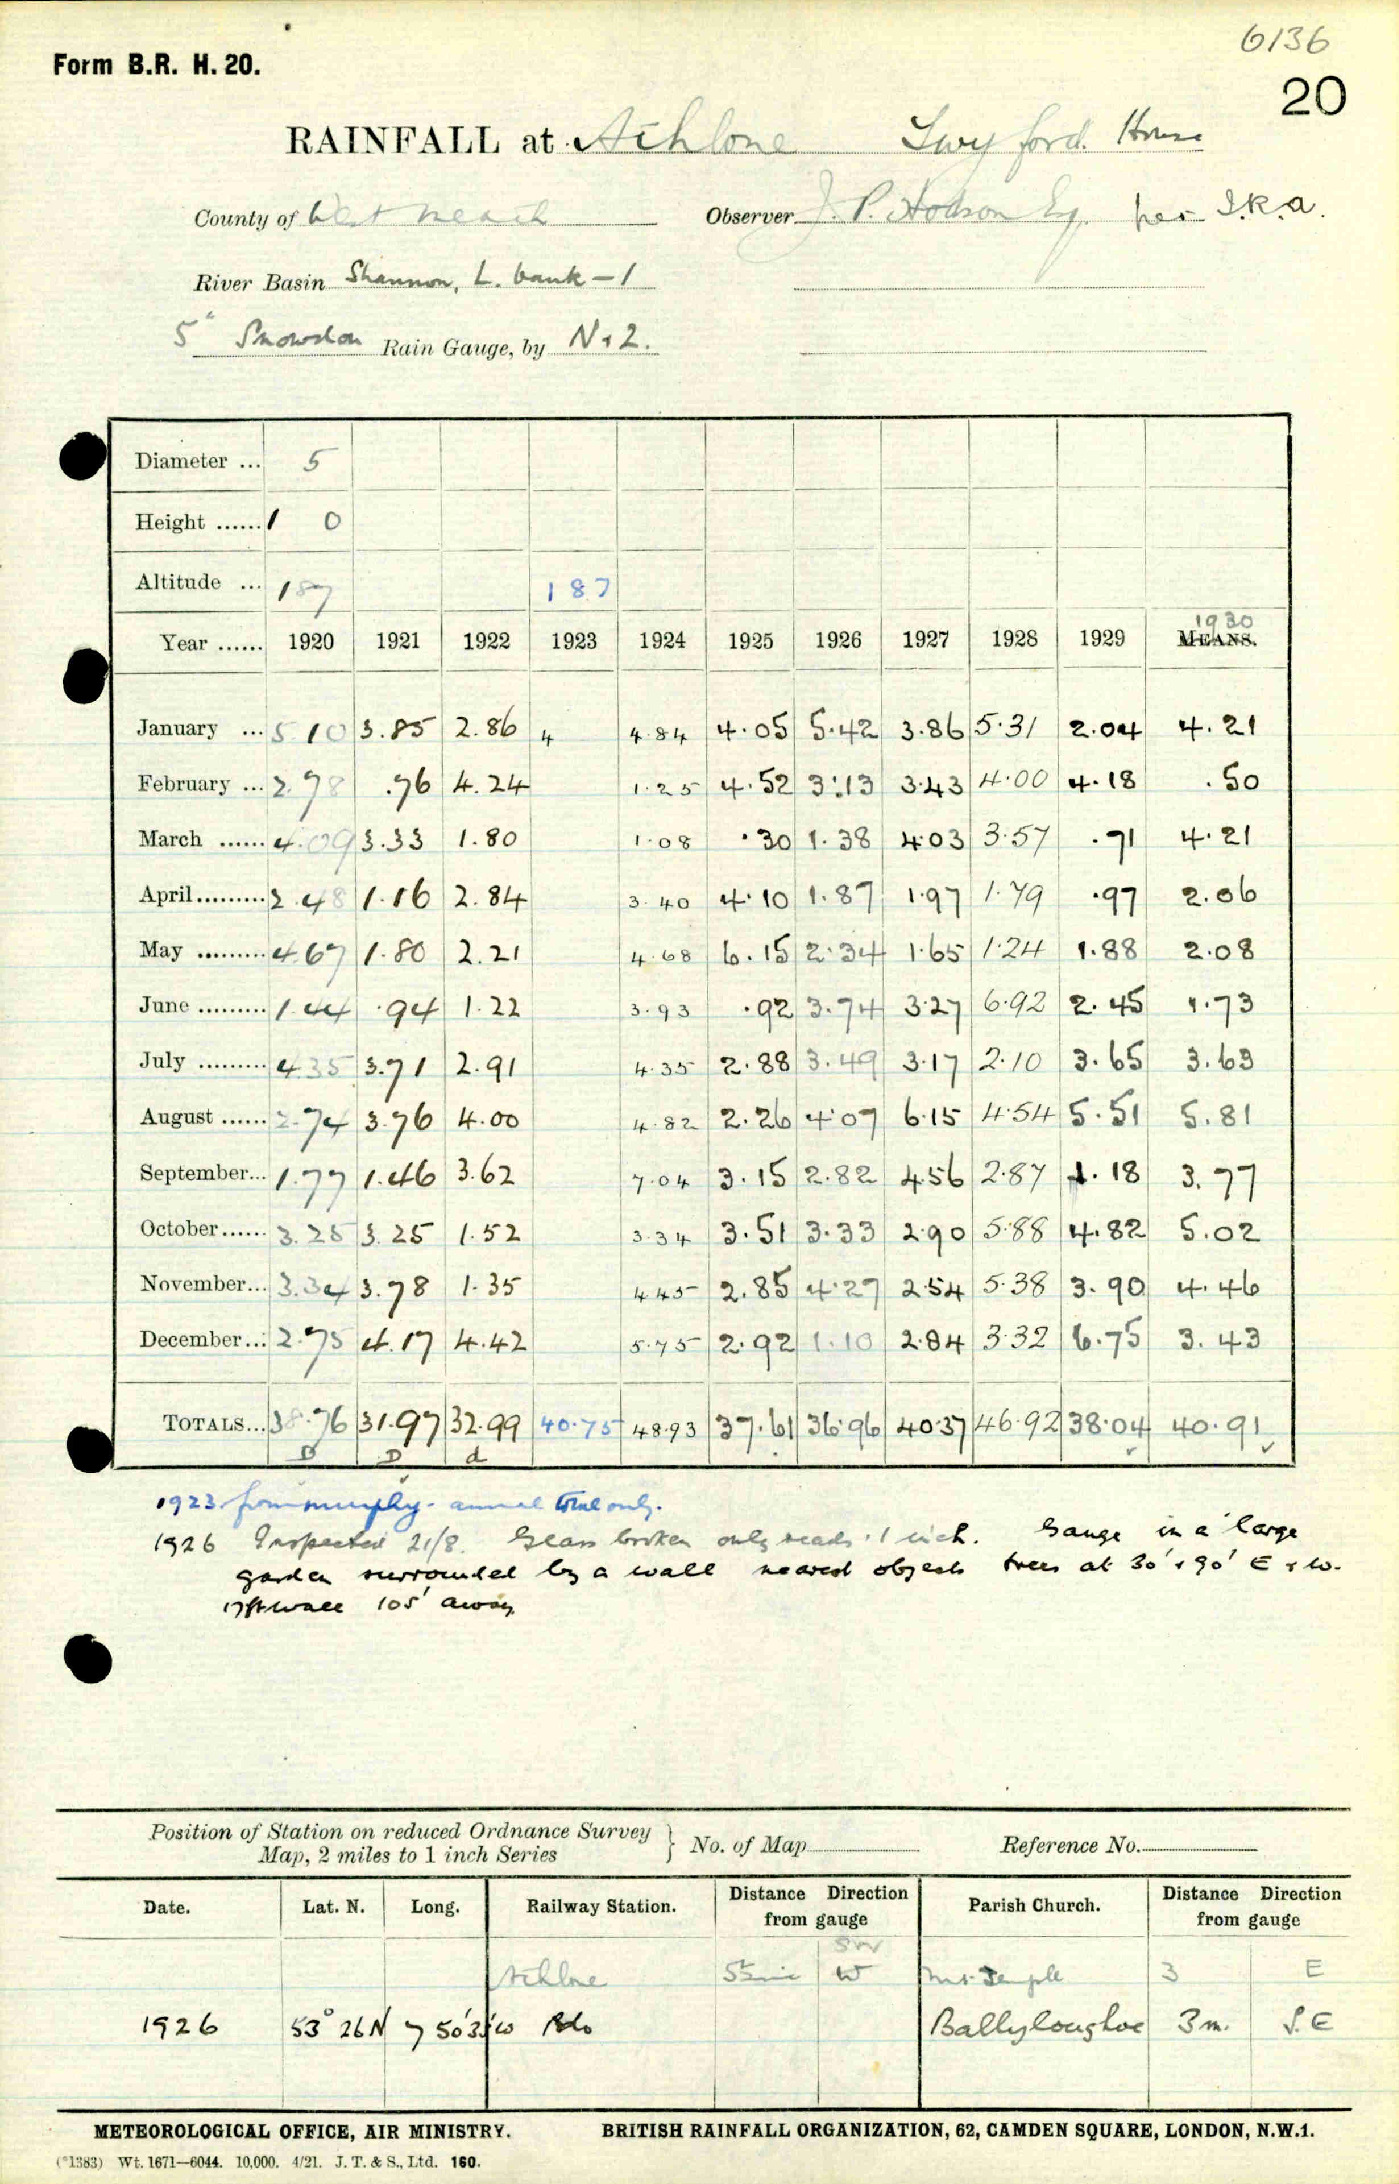 6136
Form B.R. H. 20.
20
RAINFALL at Athlone Twyford House
County of Westmeath Observer J. P. Hodson Esq. per I.R.A.
River Basin Shannon, L. bank - 1
5" Snowdon Rain Gauge, by N & Z.
Diameter ... 5
Height ...... 1 0
Altitude ... 187 187
Year ...... 1920 1921 1922 1923 1924 1925 1926 1927 1928 1929 MEANS. 1930
January ... 5.10 3.85 2.86 4 4.84 4.05 5.42 3.86 5.31 2.04 4.21
February ... 2.78 .76 4.24 1.25 4.52 3.13 3.43 4.00 4.18 .50
March ...... 4.09 3.33 1.80 1.08 .30 1.38 4.03 3.57 .71 4.21
April ......... 2.48 1.16 2.84 3.40 4.10 1.87 1.97 1.79 .97 2.06
May ......... 4.67 1.80 2.21 4.68 6.15 2.34 1.65 1.24 1.88 2.08
June ......... 1.44 .94 1.22 3.93 .92 3.74 3.27 6.92 2.45 1.73
July ......... 4.35 3.71 2.91 4.35 2.88 3.49 3.17 2.10 3.65 3.63
August ...... 2.74 3.76 4.00 4.82 2.26 4.07 6.15 4.54 5.51 5.81
September... 1.77 1.46 3.62 7.04 3.15 2.82 4.56 2.87 1.18 3.77
October...... 3.25 3.25 1.52 3.34 3.51 3.33 2.90 5.88 4.82 5.02
November... 3.34 3.78 1.35 4.45 2.85 4.27 2.54 5.38 3.90 4.46
December... 2.75 4.17 4.42 5.75 2.92 1.10 2.84 3.32 6.75 3.43
TOTALS... 38.76 31.97 32.99 40.75 48.93 37.61 36.96 40.37 46.92 38.04 40.91
D D d
1923 from murphy - annual total only.
1926 Inspected 21/8. Glass broken only reads .1 inch. Gauge in a large
garden surrounded by a wall nearest objects trees at 30' & 90' E & W.
17ft wall 105' away
Position of Station on reduced Ordnance Survey
Map, 2 miles to 1 inch Series } No. of Map Reference No.
Date. Lat. N. Long. Railway Station. Distance Direction from gauge Parish Church. Distance Direction from gauge
SW
Athlone W Mt. Temple 3 E
1926 53° 26 N 7 50'35 W Do Ballyloughloe 3 m. S.E
METEOROLOGICAL OFFICE, AIR MINISTRY. BRITISH RAINFALL ORGANIZATION, 62, CAMDEN SQUARE, LONDON, N.W.1.
(*1383) Wt. 1671—6044. 10,000. 4/21. J. T. & S., Ltd. 160.